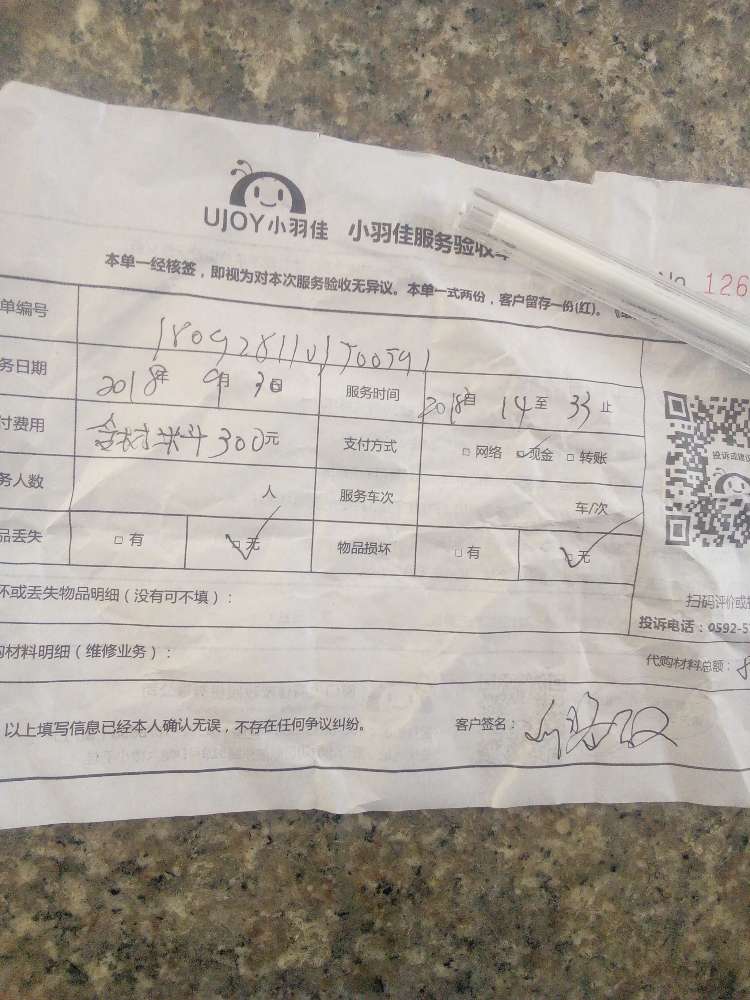 UJOY小羽佳 小羽佳服务验收
本单一经核签,即视为对本次服务验收无异议。本单一式两份,客户留存一份(红)。
No 126
单编号
务日期 2018年 9月 3日 服务时间 2018 自 14 至 33 止
付费用 含材料 300元 支付方式 □ 网络 □ 现金 □ 转账
投诉或建议
务人数 人 服务车次 车/次
品丢失 □ 有 □ 无 物品损坏 □ 有 □ 无
坏或丢失物品明细(没有可不填):
扫码评价或
投诉电话:0592-5
购材料明细(维修业务):
代购材料总额:
以上填写信息已经本人确认无误,不存在任何争议纠纷。 客户签名: